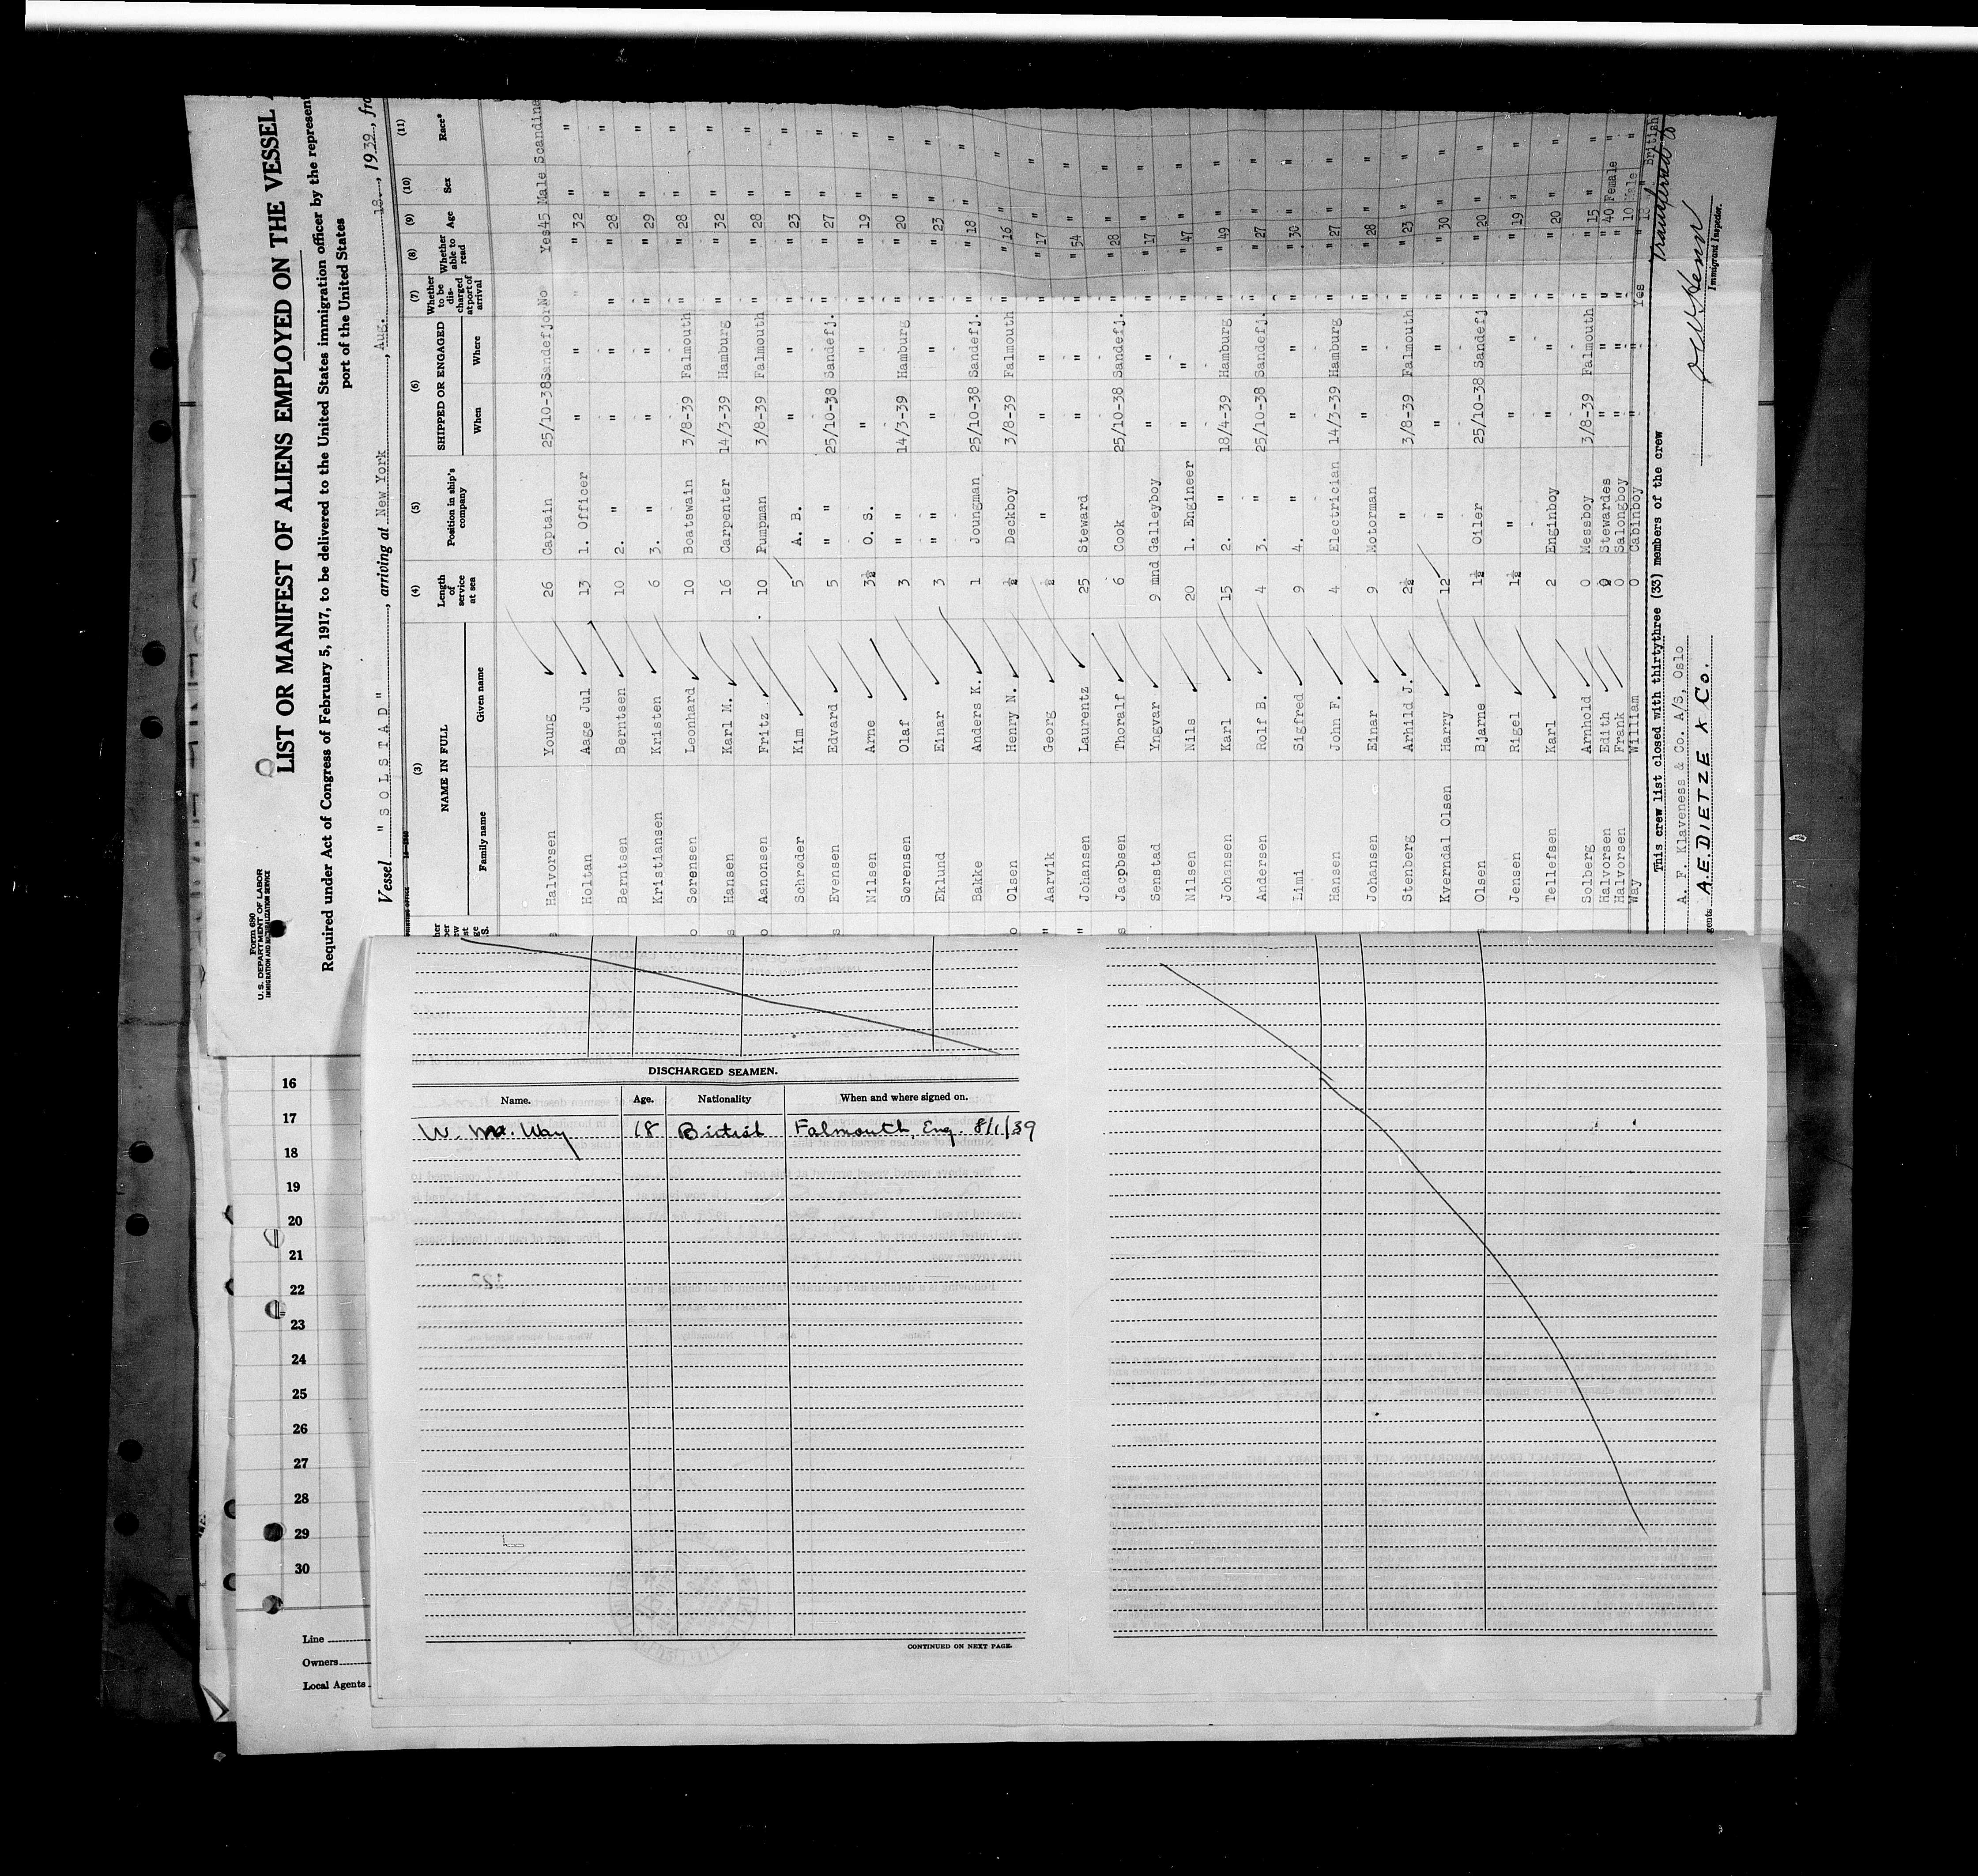 Form 680
U. S. DEPARTMENT OF LABOR
IMMIGRATION AND NATURALIZATION SERVICE
LIST OR MANIFEST OF ALIENS EMPLOYED ON THE VESSEL
Required under Act of Congress of February 5, 1917, to be delivered to the United States immigration officer by the represent
port of the United States
Vessel "SOLSTAD", arriving at New York, Aug. 18., 1939, fro
(3) (4) (5) (6) (7) (8) (9) (10) (11)
NAME IN FULL Length of service at sea Position in ship's company SHIPPED OR ENGAGED Whether to be discharged at port of arrival Whether able to read Age Sex Race*
Family name Given name When Where
Halvorsen Young 26 Captain 25/10-38 Sandefjor No Yes 45 Male Scandina
Holtan Aage Jul 13 1. Officer " " " " 32 " "
Berntsen Berntsen 10 2. " " " " " 28 " "
Kristiansen Kristen 6 3. " " " " " 29 " "
Sørensen Leonhard 10 Boatswain 3/8-39 Falmouth " " 28 " "
Hansen Karl M. 16 Carpenter 14/3-39 Hamburg " " 32 " "
Aanonsen Fritz 10 Pumpman 3/8-39 Falmouth " " 28 " "
Schrøder Kim 5 A. B. " " " " 23 " "
Evensen Edvard 5 " 25/10-38 Sandefj. " " 27 " "
Nilsen Arne 3½ O. S. " " " " 19 " "
Sørensen Olaf 3 " " 14/3-39 Hamburg " " 20 " "
Eklund Einar 3 " " " " " " 23 " "
Bakke Anders K. 1 Joungman 25/10-38 Sandefj. " " 18 " "
Olsen Henry N. ½ Deckboy 3/8-39 Falmouth " " 16 " "
Aarvik Georg ½ " " " " " 17 " "
Johansen Laurentz 25 Steward " " " " 54 " "
Jacpbsen Thoralf 6 Cook 25/10-38 Sandefj. " " 28 " "
Senstad Yngvar 9 mnd Galleyboy " " " " 17 " "
Nilsen Nils 20 1. Engineer " " " " 47 " "
Johansen Karl 15 2. " 18/4-39 Hamburg " " 49 " "
Andersen Rolf B. 4 3. " 25/10-38 Sandefj. " " 27 " "
Limi Sigfred 9 4. " " " " " 30 " "
Hansen John F. 4 Electrician 14/3-39 Hamburg " " 27 " "
Johansen Einar 9 Motorman " " " " 28 " "
Stenberg Arhild J. 2½ " 3/8-39 Falmouth " " 23 " "
Kverndal Olsen Harry 12 " " " " " 30 " "
Olsen Bjarne 1½ Oiler 25/10-38 Sandefj " " 20 " "
Jensen Rigel 1½ " " " " " 19 " "
Tellefsen Karl 2 Enginboy " " " " 20 " "
Solberg Arnhold 0 Messboy 3/8-39 Falmouth " " 15 " "
Halvorsen Edith 0 Stewardes " " " " 40 Female "
Halvorsen Frank 0 Salongboy " " " " 10 Male "
Way William 0 Cabinboy " " Yes " 18 " British
This crew list closed with thirtythree (33) members of the crew
A. F. Klaveness & Co. A/S, Oslo
A.E. DIETZE & Co.
Immigrant Inspector.
DISCHARGED SEAMEN.
Name. Age. Nationality When and where signed on.
Way 18 British Falmouth, Eng. 8/1/39
CONTINUED ON NEXT PAGE.
16
17
18
19
20
21
22
23
24
25
26
27
28
29
30
Line
Owners
Local Agents